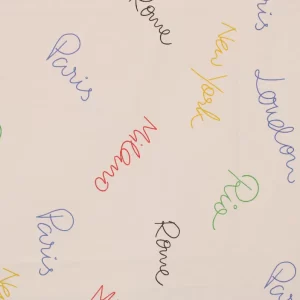 Paris
Rome
New York
Paris
London
Milano
Rio
Paris
Rome
Paris